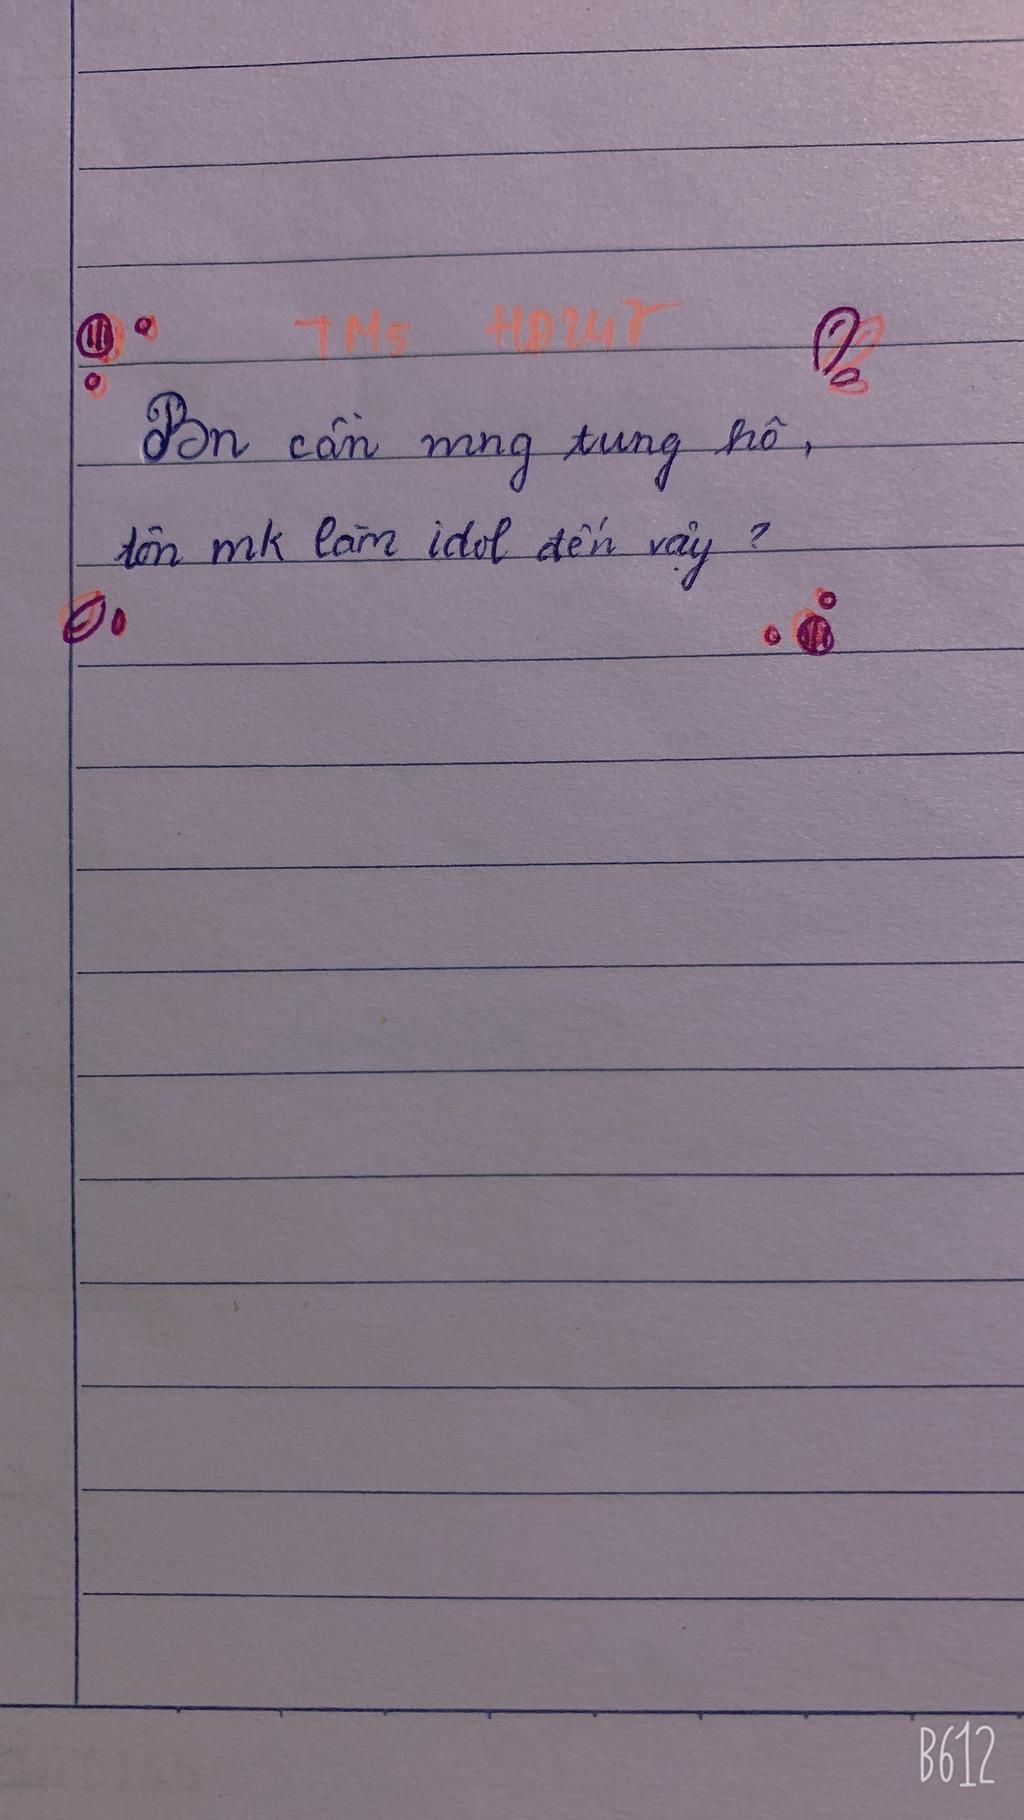 TM5 HĐ24T
Bn cần mng tung hô,
tôn mk làm idol đến vậy ?
B612